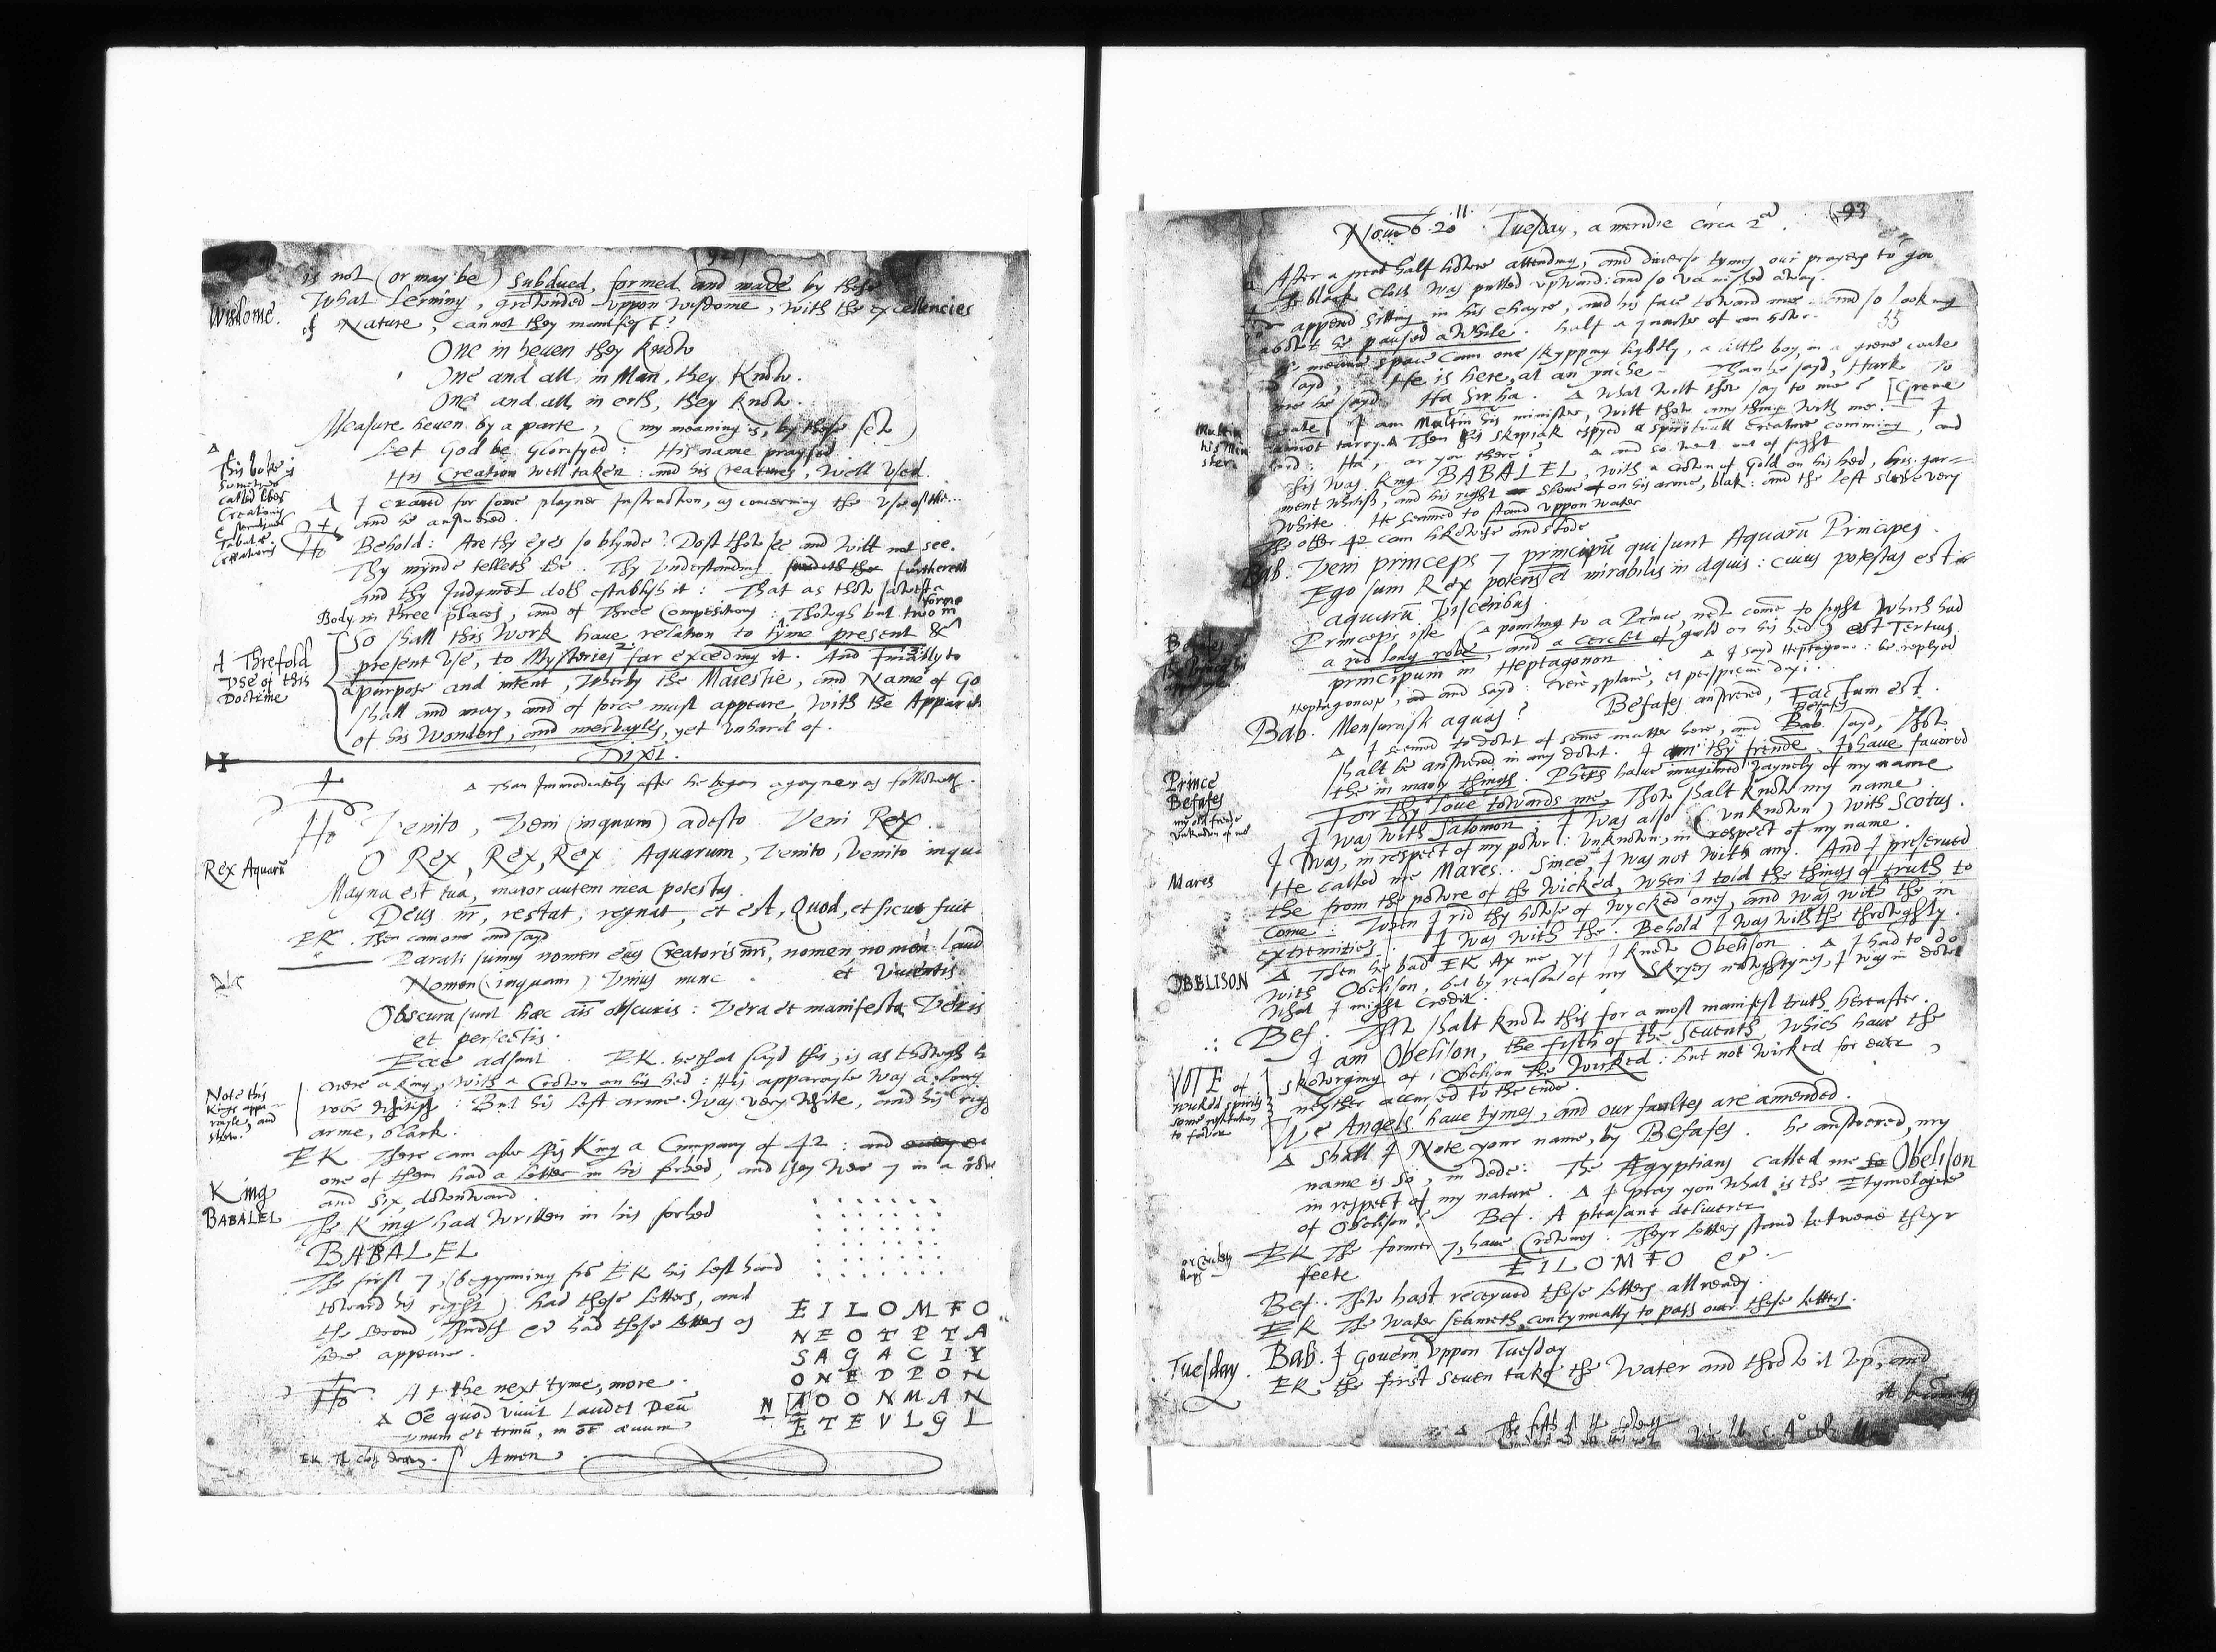 92
is not (or may be) subdued, formed and made by these
What lerning, grownded uppon wisdome, with the excellencies
Wisdome.
of Nature, cannot they manifest?
One in heven they know
One and all in Man, they Know.
One and all, in erth, they know.
Measure heven by a parte, (my meaning is, by these few)
Let God be Glorifyed: His name praysed.
His Creation well taken: and his Creatures, Well Used.
Δ
This boke
sometymes
called liber
Creationis
& sometimes
Tabulæ
Creationis
Δ I craved for some playner Instruction, as concerning the Use of the...
and he answered.
Ho Behold: Are thy eyes so blynde? Dost thow see and wilt not see.
Thy mynde telleth the. Thy Understanding furthereth
And thy Judgment doth establish it: That as thow sawest a
Body in three places, and of Three Compositions: Though but two in forme
So shall this work have relation to tyme present &
present Use, to Mysteries far exceding it. And Finally to
A Threfold
Use of this
Doctrine
a purpose and intent, Wherby the Maiestie, and Name of Go
shall and may, and of force must appeare, With the Apparit
of his Wonders, and mervayles, yet unhard of.
Dixi.
Δ Than Immediately after he began agayne as followeth.
Ho Venito, Veni (inquam) adesto Veni Rex.
O Rex, Rex, Rex Aquarum, Venito, Venito inqua
Rex Aquarū
Magna est tua, maior autem mea potestas.
Deus nr, restat, regnat, et est, Quod, et sicut fuit
EK. Then cam one and sayd
Parati sumus nomen eius Creatoris nri, nomen, nomen laud
Nomen (inquam) Unius nunc et Viventis
Obscura sunt hæc ais obscuris: Vera et manifesta Veris
et perfectis.
Ecce adsunt. EK. he that sayd this, is as thowgh h
Note this
Kings appa
rayle, and
shew.
were a King, with a Crown on his hed: His apparayle was a long
robe whitish: But his left arme was very white, and his rig
arme, black.
EK There cam after this King a Company of 42: and
one of them had a letter in his forhed, and they were 7 in a row
and six, downward.
King
BABALEL
The King had written in his forhed
BABALEL
The first 7, (begynning frō EK his left hand
toward his right) had these letters, and
the second, Thirdth &c had these letters as
here appeare.
E I L O M F O
N E O T P T A
S A G A C I Y
O N E D P O N
N A O O N M A N
E T E V L G L
Ho At the next tyme, more.
Δ Oē quod vivit Laudet Deū
unum et trinū, in oē ævum
EK. The cloth drawn. Amen
93
Novēb 20 Tuesday, a meridie circa 2ᵃ.
After a great half howre attending, and diverse tymes our prayers to god
the black cloth was pulled upward: and so vanished away.
append sitting in his chayre, and his face toward me and so looking
about he paused a while. half a quarter of an howre.
meane space cam one skypping lightly, a little boy, in a grene coate
sayd, He is here, at an ynche. Than he sayd, Hark To
me he sayd Ha Sirha. Δ What wilt thow say to me? [Grene
Coate] I am Multin his minister, wilt thow any thing with me. I
Multin
his Mini
ster.
cannot tarry. Δ Then this skipiak espyed a spirituall creature comming, and
sayd: Ha, ar you there? Δ and so went out of sight
This was King BABALEL, with a crown of Gold on his hed, his gar=
ment whitish, and his right sleve on his arme, blak: and the left sleve very
white. He seamed to stand uppon water
The other 42 cam likewise and stode
Bab. Veni princeps 7 principū qui sunt Aquarū Principes.
Ego sum Rex potens et mirabilis in aquis: cuius potestas est in
aquarū Visceribus.
Princeps iste (Δ pointing to a Prince, new come to sight which had
a red long robe, and a cerclet of gold on his hed) est Tertius
principum in Heptagonon. Δ I sayd Heptagono: he replyed
Heptagonon, and sayd: Verè, planè, et perspicuè dixi.
Bab. Mensurasti aquas? Befafes answered, Factum est.
Δ I seemed to dowt of some matter here, and Bab. Befafes sayd, Thow
shalt be answered in any dowt. I am thy frende. I have favored
Prince
Befafes
my old frende
unknown of me
the in many things. Phers have imagined vaynely of my name
For thy love towards me, Thow shalt know my name
I was with Salomon: I was also (unknown) with Scotus.
I was, in respect of my powr: unknown, in respect of my name.
Mares
He called me Mares. Since I was not with any. And I preserved
the from the powre of the wicked, when I told the things of truth to
come. When I rid thy howse of wycked ones, and was with the in
extremities. I was with the. Behold I was with the throwghly.
OBELISON
Δ Then he bad EK Ax me, yf I knew Obelison. Δ I had to do
with Obelison, but by reason of my Skryers nowghtynes, I was in dowt
what I might credit.
Bef. Thow shalt know this for a most manifest truth hereafter.
I am Obelison, the fifth of the Seventh, which have the
skowrging of Obelison the wicked: but not wicked for ever,
neyther accursed to the ende.
NOTE of
wicked spirits
some restitution
to favor
We Angels have tymes, and our faultes are amended.
Δ Shall I Note your name, by Befafes. he answered, my
name is so, in dede: The Ægyptians called me Obelison
in respect of my nature. Δ I pray you what is the Etymologie
of Obelison? Bef. A pleasant deliverer
EK The former 7, have Crownes. Theyr letters stand betwene theyr
feete EILOMFO &c.
Bef. Thow hast receyved these letters allready.
EK The Water seameth contynually to pass over these letters.
Tuesday.
Bab. I Govern uppon Tuesday
EK the first seven take the Water and throw it Up, and
it becometh
Δ The fifth of the seventh